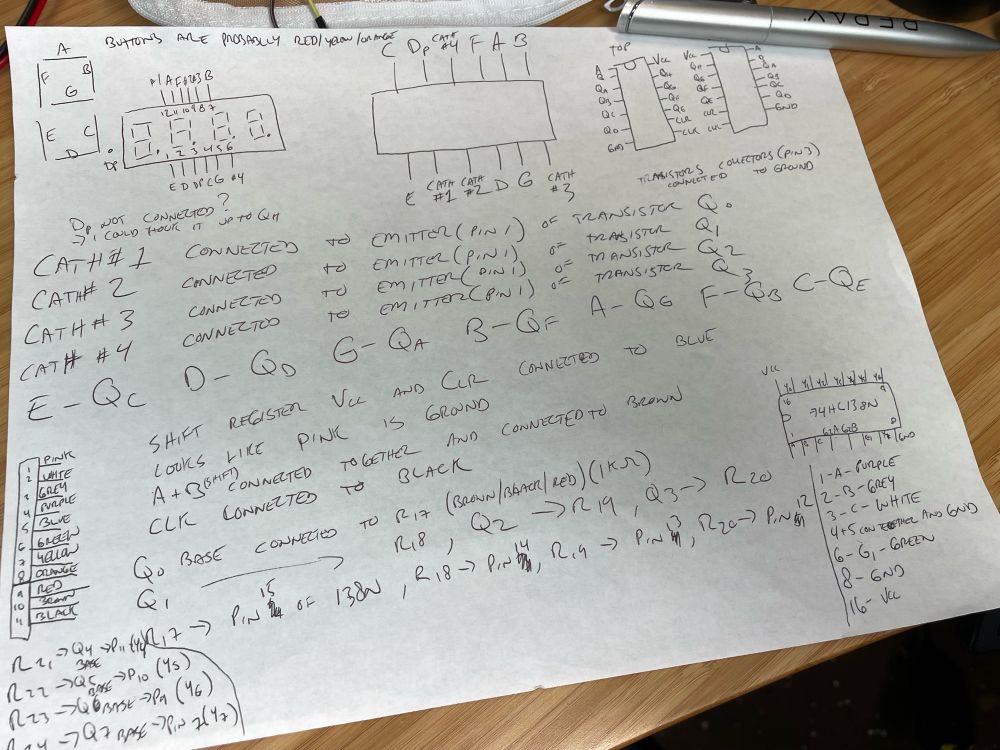 BUTTONS ARE PROBABLY RED/YELLOW/ORANGE
A
F B
G
E C
D
DP
#1 A F #2 #3 B
12 11 10 9 8 7
1 2 3 4 5 6
E D DP C G #4
C DP CATH #4 F A B
E CATH #1 CATH #2 D G CATH #3
TOP
A
QA
QB
QC
QD
GND
VCC
QH
QG
QF
QE
CLR
CLK
VCC
QH
QG
QF
QE
CLR
CLK
A
QA
QB
QC
QD
GND
TRANSISTORS COLLECTORS (PIN 3)
CONNECTED TO GROUND
DP NOT CONNECTED?
→ I COULD HOOK IT UP TO QH
CATH #1 CONNECTED TO EMITTER (PIN 1) OF TRANSISTOR Q0
CATH # 2 CONNECTED TO EMITTER (PIN 1) OF TRANSISTOR Q1
CATH # 3 CONNECTED TO EMITTER (PIN 1) OF TRANSISTOR Q2
CATH #4 CONNECTED TO EMITTER (PIN 1) OF TRANSISTOR Q3
E - QC D - QD G - QA B - QF A - QG F - QB C - QE
SHIFT REGISTER VCC AND CLR CONNECTED TO BLUE
LOOKS LIKE PINK IS GROUND
A + B (SHIFT) CONNECTED TOGETHER AND CONNECTED TO BROWN
CLK CONNECTED TO BLACK
Q0 BASE CONNECTED TO R17 (BROWN/BLACK/RED) (1KΩ)
Q1 → R18, Q2 → R19, Q3 → R20
R17 → PIN 15 OF 138N, R18 → PIN 14, R19 → PIN 13, R20 → PIN 12
1 PINK
2 WHITE
3 GREY
4 PURPLE
5 BLUE
6 GREEN
7 YELLOW
8 ORANGE
9 RED
10 BROWN
11 BLACK
R21 → Q4 BASE → P11 (Y4)
R22 → Q5 BASE → P10 (Y5)
R23 → Q6 BASE → P9 (Y6)
→ Q7 BASE → PIN 7 (Y7)
VCC
Y0 Y1 Y2 Y3 Y4 Y5 Y6
16 9
74HC138N
G2A G2B
1 8
A B C G1 Y7 GND
1 - A - PURPLE
2 - B - GREY
3 - C - WHITE
4+5 CON TOGETHER AND GND
6 - G1 - GREEN
8 - GND
16 - VCC